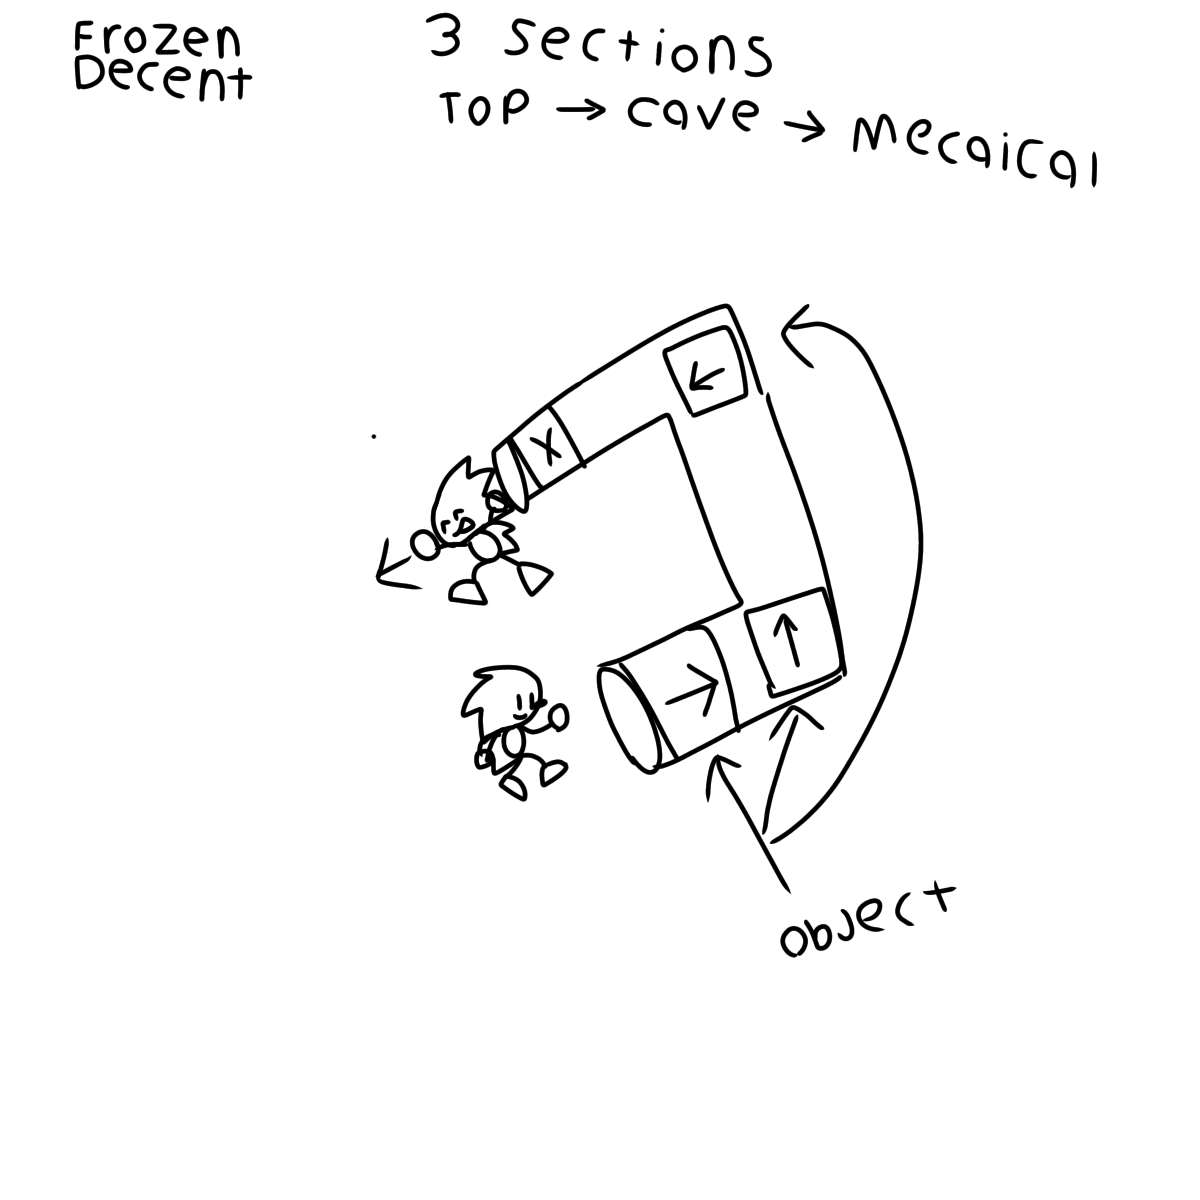 Frozen
Decent
3 sections
TOP → cave → mecaical
X
object